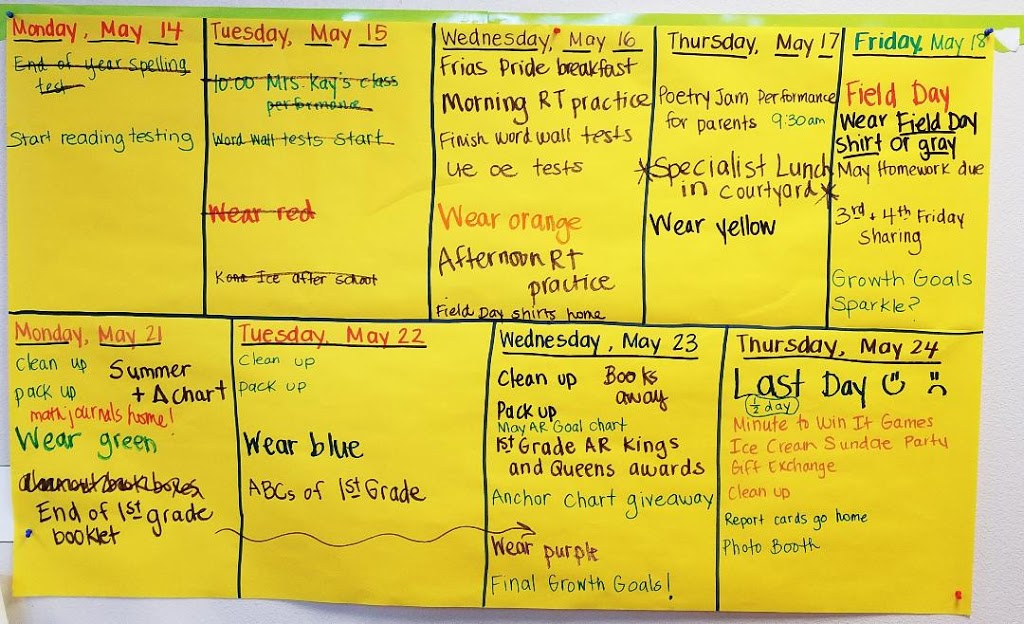 Monday, May 14
End of year spelling
test
Start reading testing
Tuesday, May 15
10:00 Mrs. Kay's class
performance
Word wall tests start
Wear red
Kona Ice after school
Wednesday, May 16
Frias Pride breakfast
Morning RT practice
Finish word wall tests
ue oe tests
Wear orange
Afternoon RT
practice
Field Day shirts home
Thursday, May 17
Poetry Jam Performance
for parents 9:30am
*Specialist Lunch
in courtyard*
Wear yellow
Friday, May 18
Field Day
Wear Field Day
shirt or gray
May Homework due
3rd + 4th Friday
Sharing
Growth Goals
Sparkle?
Monday, May 21
Clean up
pack up
Summer
+ A chart
math journals home!
Wear green
End of 1st grade
booklet
Tuesday, May 22
Clean up
Pack up
Wear blue
ABCs of 1st Grade
Wednesday, May 23
Clean up Books
away
Pack up
May AR Goal chart
1st Grade AR Kings
and Queens awards
Anchor Chart giveaway
Wear purple
Final Growth Goals!
Thursday, May 24
Last Day ☺ ☹
½ day
Minute to Win It Games
Ice Cream Sundae Party
Gift Exchange
Clean up
Report cards go home
Photo Booth